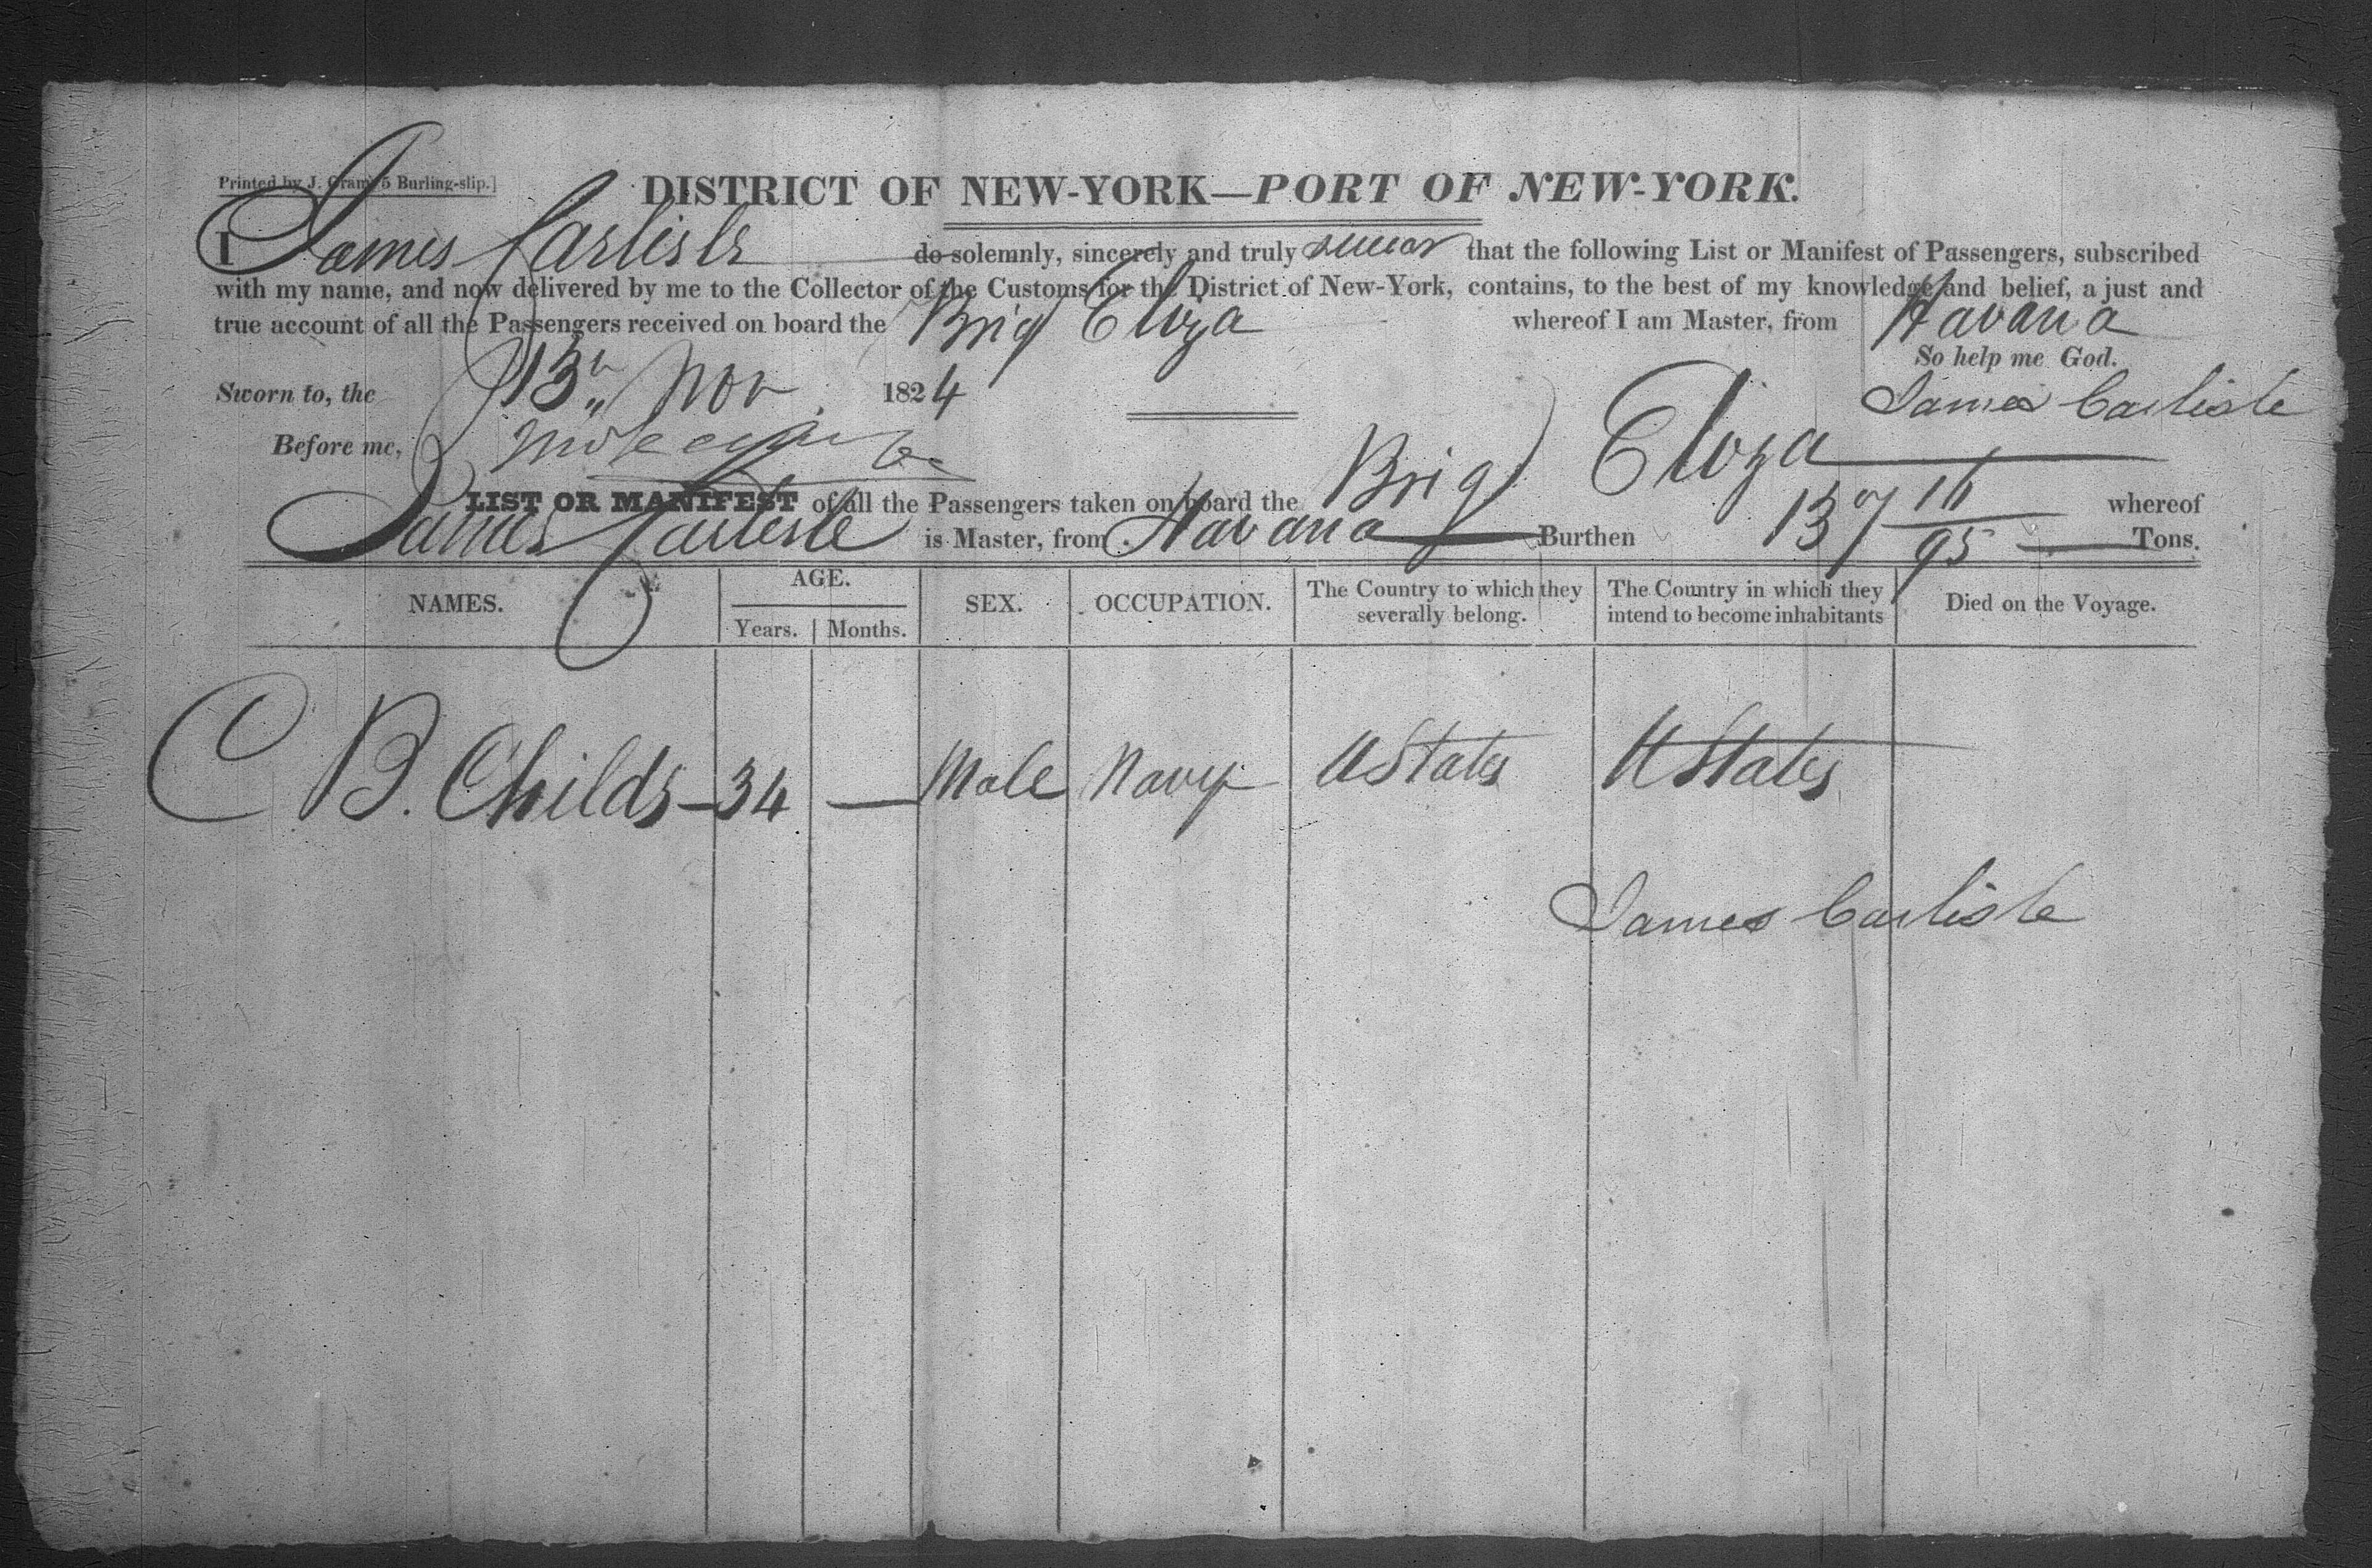 Printed by J. Gram, 5 Burling-slip.]
DISTRICT OF NEW-YORK—PORT OF NEW-YORK.
I James Carlisle do solemnly, sincerely and truly swear that the following List or Manifest of Passengers, subscribed
with my name, and now delivered by me to the Collector of the Customs for the District of New-York, contains, to the best of my knowledge and belief, a just and
true account of all the Passengers received on board the Brig Eliza whereof I am Master, from Havana
So help me God.
Sworn to, the 13th Nov. 1824
James Carlisle
Before me,
LIST OR MANIFEST of all the Passengers taken on board the Brig Eliza whereof
James Carlisle is Master, from Havana Burthen 137 16/95 Tons.
NAMES. AGE. SEX. OCCUPATION. The Country to which they severally belong. The Country in which they intend to become inhabitants Died on the Voyage.
Years. Months.
C B. Childs — 34 — Male Navy UStates UStates
James Carlisle